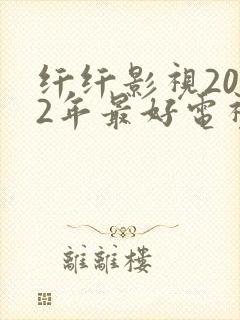 纤纤影視20
2年最好電視
離離樓